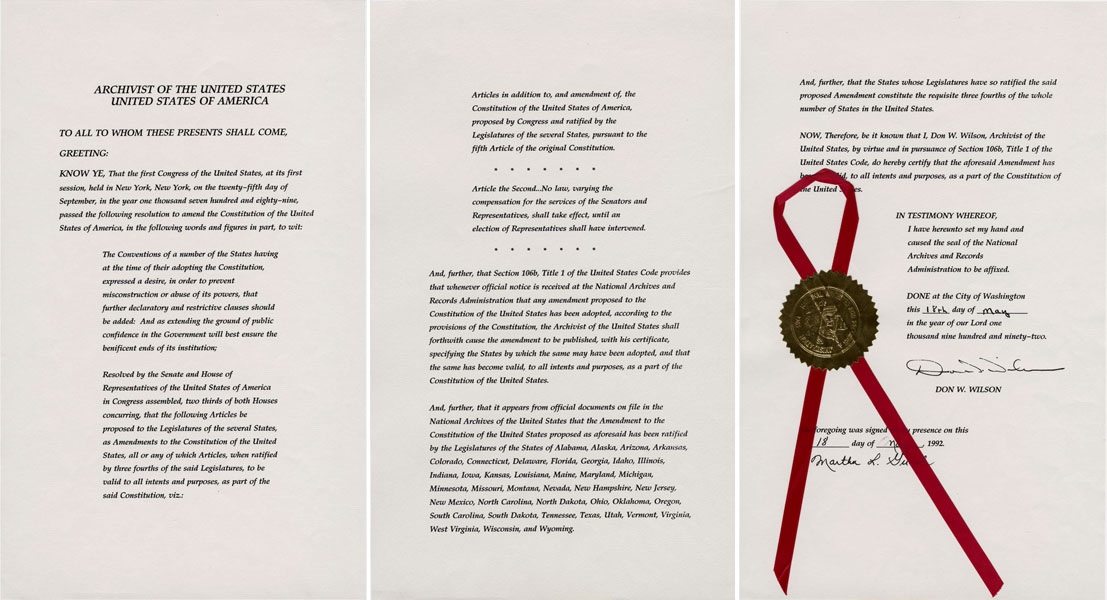 ARCHIVIST OF THE UNITED STATES
UNITED STATES OF AMERICA
TO ALL TO WHOM THESE PRESENTS SHALL COME,
GREETING:
KNOW YE, That the first Congress of the United States, at its first
session, held in New York, New York, on the twenty-fifth day of
September, in the year one thousand seven hundred and eighty-nine,
passed the following resolution to amend the Constitution of the United
States of America, in the following words and figures in part, to wit:
The Conventions of a number of the States having
at the time of their adopting the Constitution,
expressed a desire, in order to prevent
misconstruction or abuse of its powers, that
further declaratory and restrictive clauses should
be added: And as extending the ground of public
confidence in the Government will best ensure the
benificent ends of its institution;
Resolved by the Senate and House of
Representatives of the United States of America
in Congress assembled, two thirds of both Houses
concurring, that the following Articles be
proposed to the Legislatures of the several States,
as Amendments to the Constitution of the United
States, all or any of which Articles, when ratified
by three fourths of the said Legislatures, to be
valid to all intents and purposes, as part of the
said Constitution, viz.:
Articles in addition to, and amendment of, the
Constitution of the United States of America,
proposed by Congress and ratified by the
Legislatures of the several States, pursuant to the
fifth Article of the original Constitution.
* * * * * * *
Article the Second...No law, varying the
compensation for the services of the Senators and
Representatives, shall take effect, until an
election of Representatives shall have intervened.
* * * * * * *
And, further, that Section 106b, Title 1 of the United States Code provides
that whenever official notice is received at the National Archives and
Records Administration that any amendment proposed to the
Constitution of the United States has been adopted, according to the
provisions of the Constitution, the Archivist of the United States shall
forthwith cause the amendment to be published, with his certificate,
specifying the States by which the same may have been adopted, and that
the same has become valid, to all intents and purposes, as a part of the
Constitution of the United States.
And, further, that it appears from official documents on file in the
National Archives of the United States that the Amendment to the
Constitution of the United States proposed as aforesaid has been ratified
by the Legislatures of the States of Alabama, Alaska, Arizona, Arkansas,
Colorado, Connecticut, Delaware, Florida, Georgia, Idaho, Illinois,
Indiana, Iowa, Kansas, Louisiana, Maine, Maryland, Michigan,
Minnesota, Missouri, Montana, Nevada, New Hampshire, New Jersey,
New Mexico, North Carolina, North Dakota, Ohio, Oklahoma, Oregon,
South Carolina, South Dakota, Tennessee, Texas, Utah, Vermont, Virginia,
West Virginia, Wisconsin, and Wyoming.
And, further, that the States whose Legislatures have so ratified the said
proposed Amendment constitute the requisite three fourths of the whole
number of States in the United States.
NOW, Therefore, be it known that I, Don W. Wilson, Archivist of the
United States, by virtue and in pursuance of Section 106b, Title 1 of the
United States Code, do hereby certify that the aforesaid Amendment has
to all intents and purposes, as a part of the Constitution of
the United
IN TESTIMONY WHEREOF,
I have hereunto set my hand and
caused the seal of the National
Archives and Records
Administration to be affixed.
DONE at the City of Washington
this 18th day of May
in the year of our Lord one
thousand nine hundred and ninety-two.
Don W. Wilson
DON W. WILSON
foregoing was signed presence on this
18 day of 1992.
Martha L.